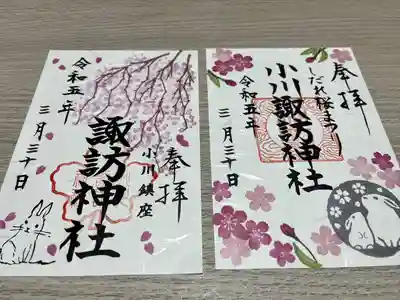 奉拝
小川鎮座
諏訪神社
令和五年
三月三十日
奉拝
しだれ桜まつり
小川諏訪神社
令和五年
三月三十日